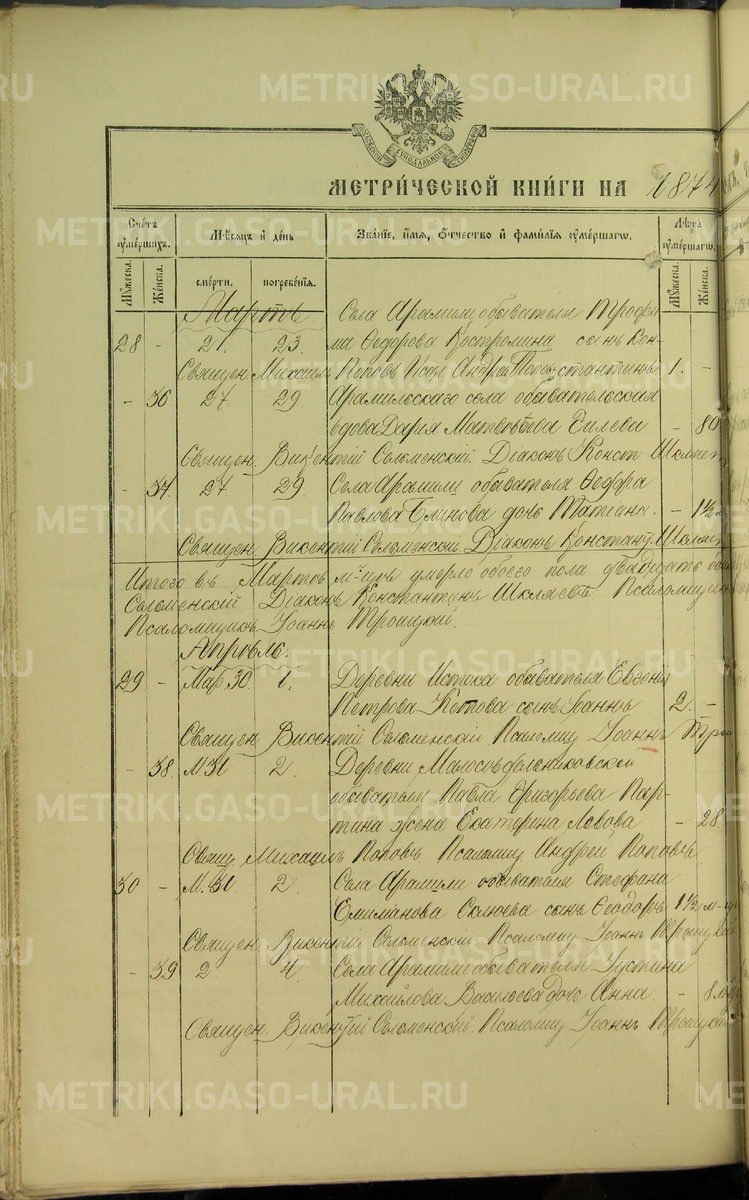 МЕТРИЧЕСКОЙ КНИГИ НА 1874
Счетъ умершихъ.
Мѣсяцъ и день
Званіе, имя, отчество и фамилія умершаго.
Лѣта умершаго.
Мужеска. Женска.
смерти. погребенія.
Мужеска. Женска.
Мартъ
Села Арамили обывателя Трофи-
28 - 21. 23. ма Ѳедорова Костромина сынъ Кон-
Священ. Михаилъ Поповъ Псал. Андрей Поповъ стантинъ 1. -
- 36 27 29 Арамильскаго села обывательская
вдова Дарія Матвѣева - 80
Священ. Викентій Сельменскій. Діаконъ Конст. Шкляевъ
- 37 27 29. Села Арамили обывателя Ѳедора
Павлова Блинова дочь Татіана. - 1½ м
Священ. Викентій Сельменскій. Діаконъ Констант. Шкляевъ
Итого въ Мартѣ м-цѣ умерло обоего пола двадцать
Сельменскій Діаконъ Константинъ Шкляевъ Псаломщикъ
Псаломщикъ Іоаннъ Троицкій.
Апрѣль.
29 - Мар. 30. 1. Деревни Истока обывателя Евгенія
Петрова Котова сынъ Іоаннъ 2. -
Священ. Викентій Сельменскій Псаломщ. Іоаннъ Трои
- 38 М 31 2. Деревни Малосѣдельниковской
обывателя Павла Григорьева Пар-
тина жена Екатерина Львова - 28
Свящ. Михаилъ Поповъ. Псаломщ. Андрей Поповъ.
30 - М. 31 2. Села Арамили обывателя Стефана
сынъ Ѳеодоръ 1½ м-ц
Священ. Викентій Сельменскій Псаломщ. Іоаннъ Троицкій
- 39 2 4. Села Арамили обывателя Устина
Михайлова Васильева дочь Анна. - 8 м
Священ. Викентій Сельменскій. Псаломщ. Іоаннъ Троицкій
METRIKI.GASO-URAL.RU